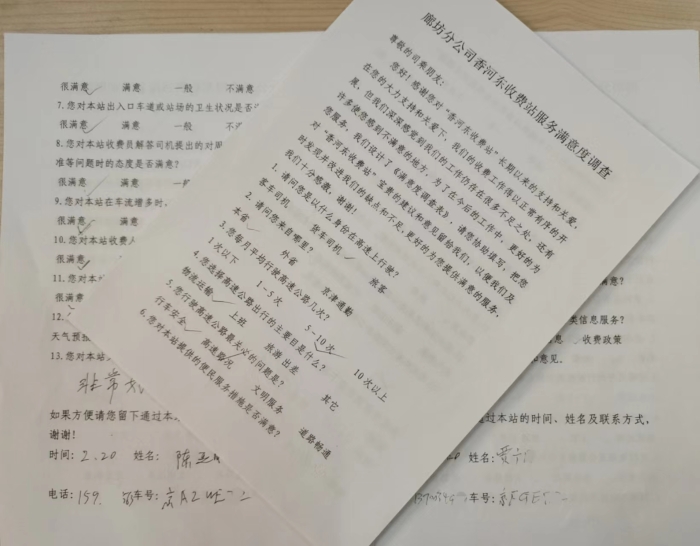 廊坊分公司香河东收费站服务满意度调查
尊敬的司乘朋友：
您好！感谢您对“香河东收费站”长期以来的支持和关爱，
在您的大力支持和关爱下，我们的收费工作得以正常有序的开
展，但我们深深感觉到我们的工作仍存在很多不足之处，还有
许多使您感到不满意的地方，为了在今后的工作中，更好的为
您服务，我们设计了《满意度调查表》，请您协助填写，把您
对“香河东收费站”宝贵的建议和意见留给我们，以便我们及
时发现并改进我们的缺点和不足，更好的为您提供满意的服务，
我们十分感激，谢谢！
1、请问您是以什么身份在高速上行驶？
客车司机 货车司机 旅客
2、请问您来自哪里？
本省 外省 京津通勤
3、您每月平均行驶高速公路几次？
1次以下 1-5次 5-10次 10次以上
4、您选择高速公路出行的主要目是什么？
物流运输 上班 旅游出差 其它
5、您行驶高速公路最关心的问题是？
行车安全 高速路况 文明服务 道路畅通
6、您对本站提供的便民服务措施是否满意？
很满意 满意 一般 不满意
7.您对本站出入口车道或站场的卫生状况是否
很满意 满意 一般
8.您对本站收费员解答司机提出的对周
准等问题时的态度是否满意？
很满意 满意
9.您对本站在车流增多时，
很满意 满意
10.您对本站收费人
很满意
11.您对本站
很满意
12.
天气预报
13.您对本站
非常
如果方便请您留下通过本
谢谢！
时间：2.20 姓名：陈
电话：159 车号：京A
类信息服务？
息 收费政策
意见.
过本站的时间、姓名及联系方式，
20 姓名：贾
车号：